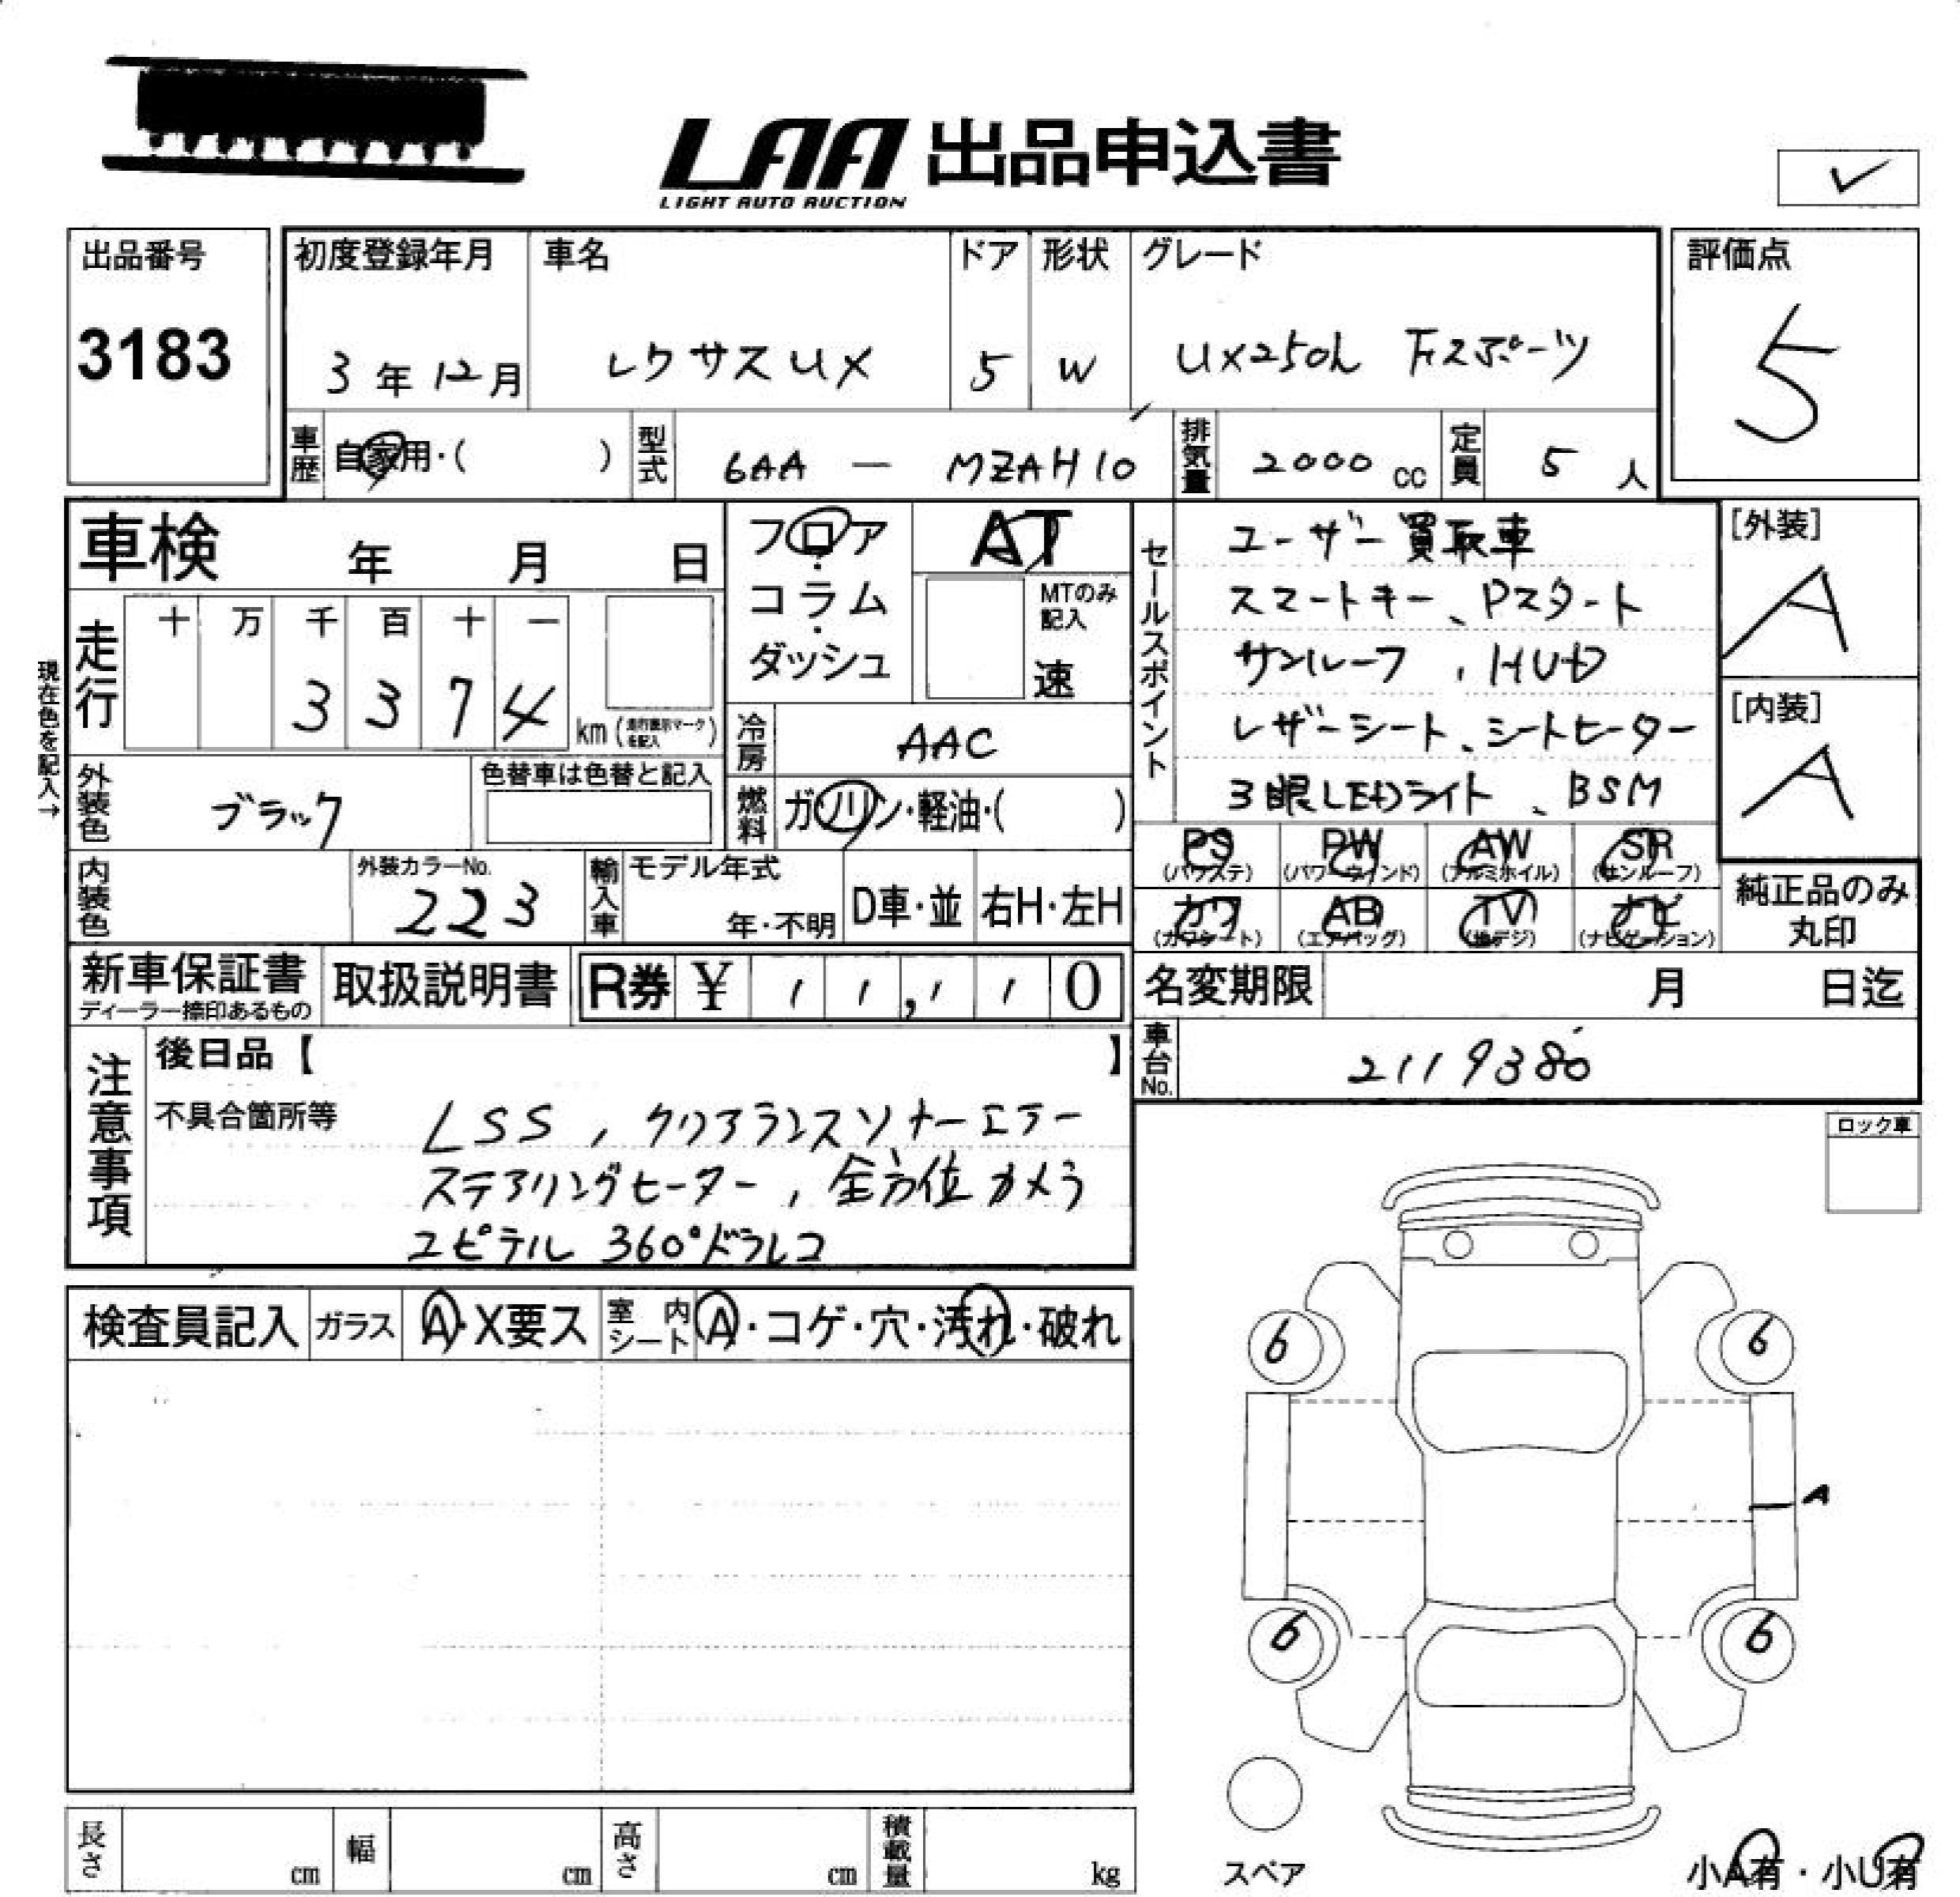 LAA 出品申込書
LIGHT AUTO AUCTION
出品番号
3183
初度登録年月
3年12月
車名
レクサスUX
ドア
5
形状
W
グレード
UX250h Fスポーツ
評価点
5
車歴
自家用・( )
型式
6AA — MZAH10
排気量
2000 cc
定員
5 人
車検 年 月 日
現在色を記入→
走行
十 万 千 百 十 一
3 3 7 4 km (走行表示マークを記入)
フロア・コラム・ダッシュ
AT
MTのみ記入
速
冷房
AAC
燃料
ガソリン・軽油・( )
外装色
ブラック
色替車は色替と記入
内装色
外装カラーNo.
223
輸入車
モデル年式
年・不明
D車・並
右H・左H
セールスポイント
ユーザー買取車
スマートキー、Pスタート
サンルーフ、HUD
レザーシート、シートヒーター
3眼LEDライト、BSM
[外装]
A
[内装]
A
PS (パワステ)
PW (パワーウインド)
AW (アルミホイル)
SR (サンルーフ)
カワ (カワシート)
AB (エアバッグ)
TV (地デジ)
ナビ (ナビゲーション)
純正品のみ
丸印
新車保証書
ディーラー捺印あるもの
取扱説明書
R券 ¥ 1 1,1 1 0
名変期限 月 日迄
車台No.
2119380
注意事項
後日品【 】
不具合箇所等
LSS，クリアランスソナーエラー
ステアリングヒーター，全方位カメラ
ユピテル 360°ドラレコ
ロック車
検査員記入
ガラス
A・X要ス
室内シート
A・コゲ・穴・汚れ・破れ
6
6
A
6
6
スペア
小A有・小U有
長さ cm
幅 cm
高さ cm
積載量 kg